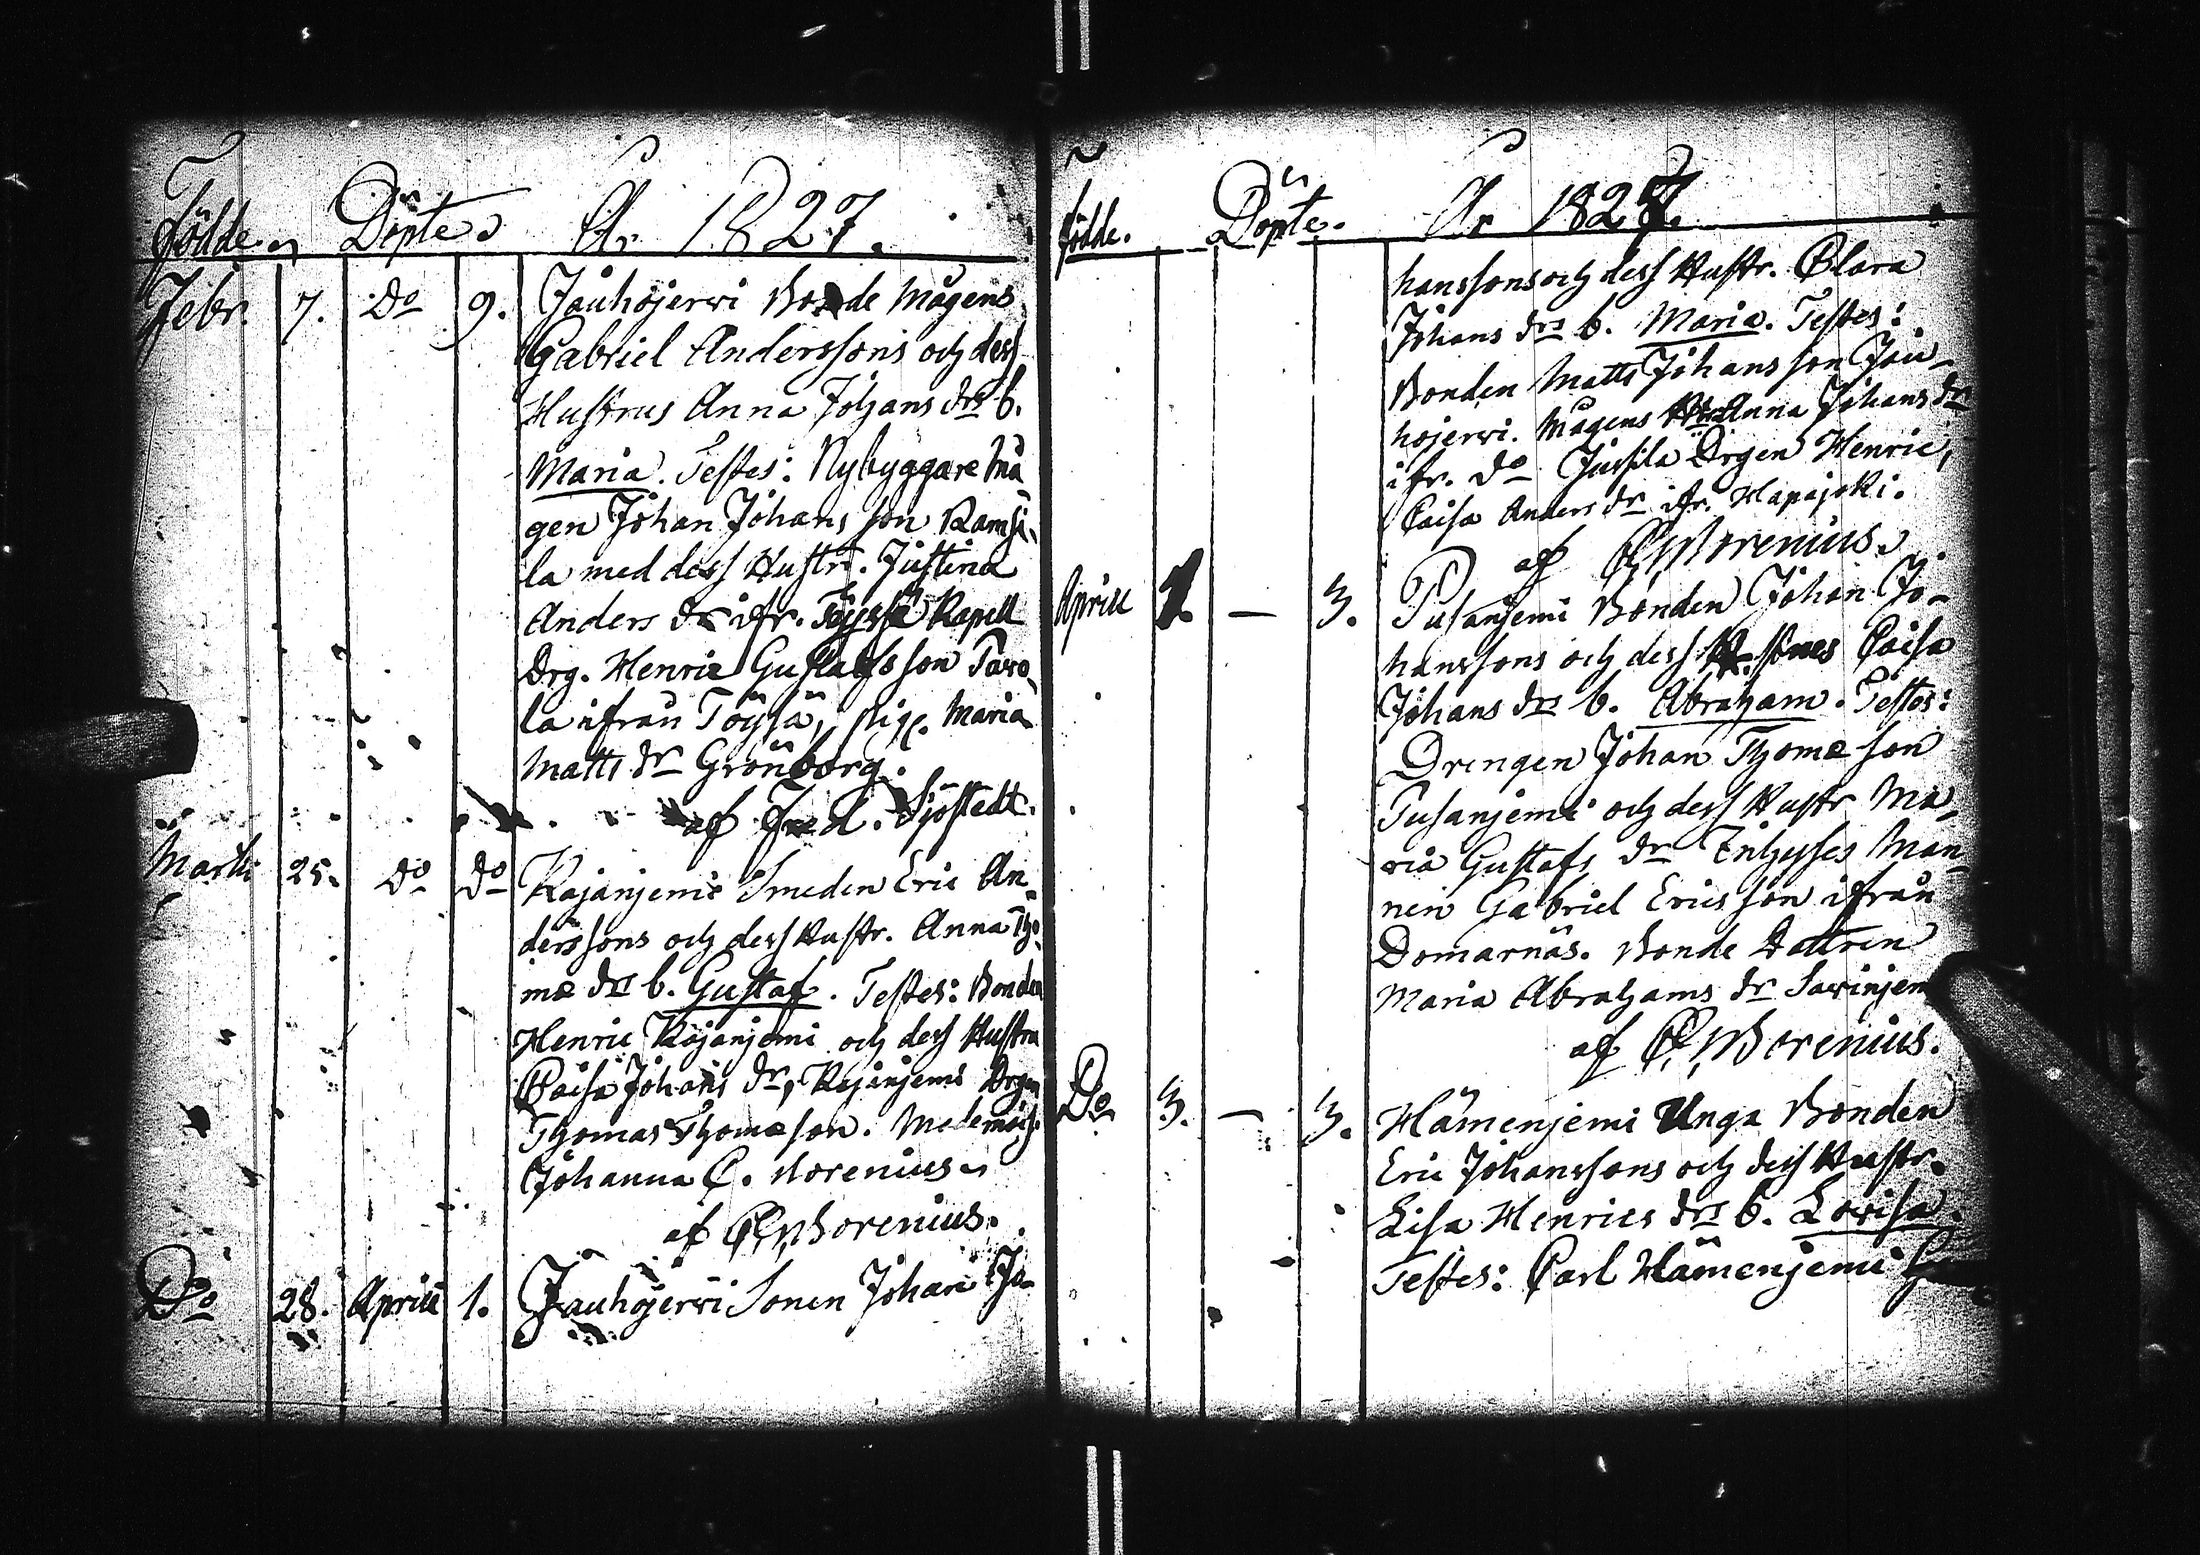 Födde. Döpte. År 1827.
Febr. 7. Do 9. Jauhojerwi Bonde Mågens
Gabriel Anderssons och dess
Hustrus Anna Johans drs b.
Maria. Testes: Nybyggare Må
gen Johan Johansson Ramsi-
la med dess Hustr. Justina
Anders dr ifr. Töysä Kapell
Drg. Henric Gustafsson Tawo-
la ifrån Töysä, pig. Maria
Matts dr Grönborg.
af Fred. Sjöstedt.
Martii 25. Do Do Kojanjemi Smeden Eric An-
derssons och dess Hustr. Anna Tho-
mæ drs b. Gustaf. Testes: Bonden
Henric Kojanjemi och dess Hustru
Caisa Johans dr, Kojanjemi Drgen
Thomas Thomæson. Mademois.
Johanna C. Norenius
af Norenius.
Do 28. Aprill 1. Jauhojerwi Sonen Johan Jo-
födde. Döpte. År 1827.
hanssons och dess Hustr. Clara
Johans drs b. Maria. Testes:
Bonden Matts Johansson Jau-
hojerwi. Mågens Anna Johans dr
ifr. Do Jussila Drgen Henric,
Caisa Anders dr ifr. Hapajoki.
af Norenius.
Aprill 1. — 3. Pusanjemi Bonden Johan Jo-
hanssons och dess Caisa
Johans drs b. Abraham. Testes:
Drengen Johan Thomæson
Pusanjemi och dess Hustr Ma-
ria Gustafs dr Inhyses Man-
nen Gabriel Ericsson ifrån
Domarnäs. Bonde Dottren
Maria Abrahams dr Sawinjem
af Norenius.
Do 3. — 3. Hämenjemi Unga Bonden
Eric Johanssons och dess Hustr.
Lisa Henrics drs b. Lovisa.
Testes: Carl Hämenjemi